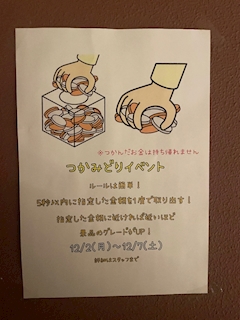 ※つかんだお金は持ち帰れません
つかみどりイベント
ルールは簡単！
5秒以内に指定した金額を1度で取り出す！
指定した金額に近ければ近いほど
景品のグレードがUP！
12/2(月)～12/7(土)
詳細はスタッフまで